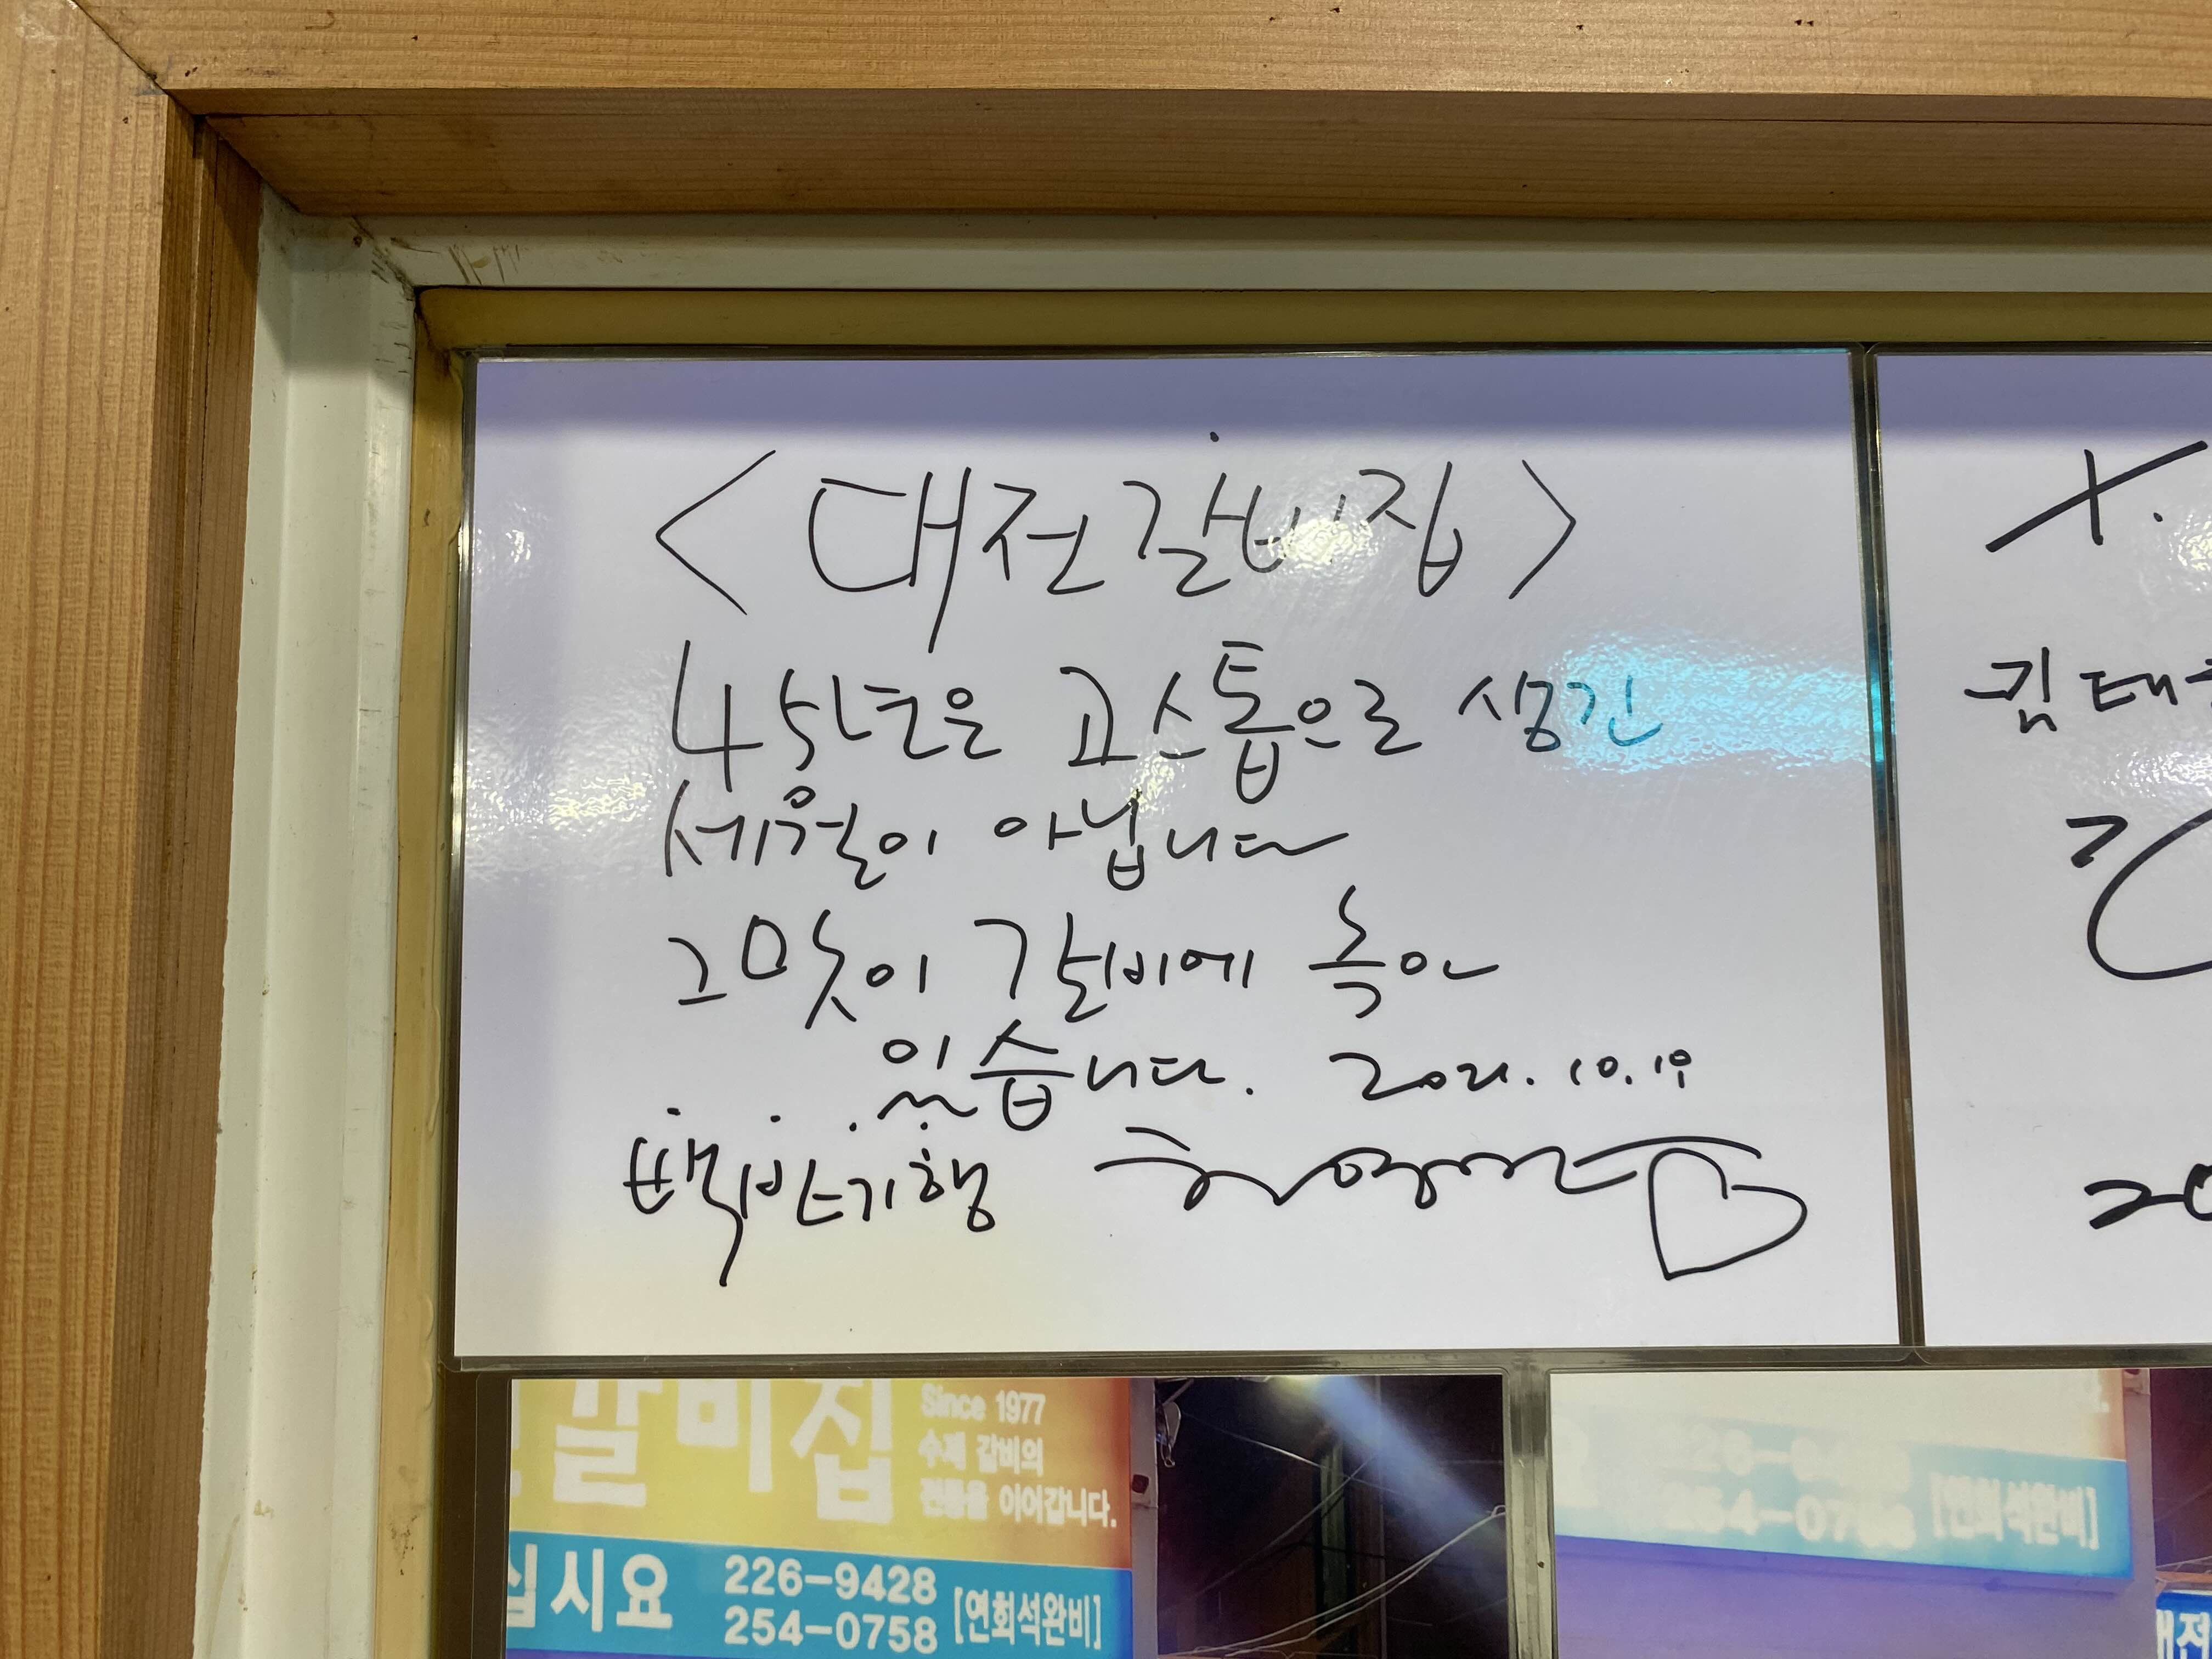 <대전갈비집>
45년은 고스톱으로 생긴
세월이 아닙니다
그맛이 갈비에 녹아
있습니다. 2021.10.19
백반기행
X.
김태
20
갈비집
Since 1977
수제 갈비의
전통을 이어갑니다.
십시요
226-9428
254-0758
[연회석완비]
254-07
[연회석완비]
대전